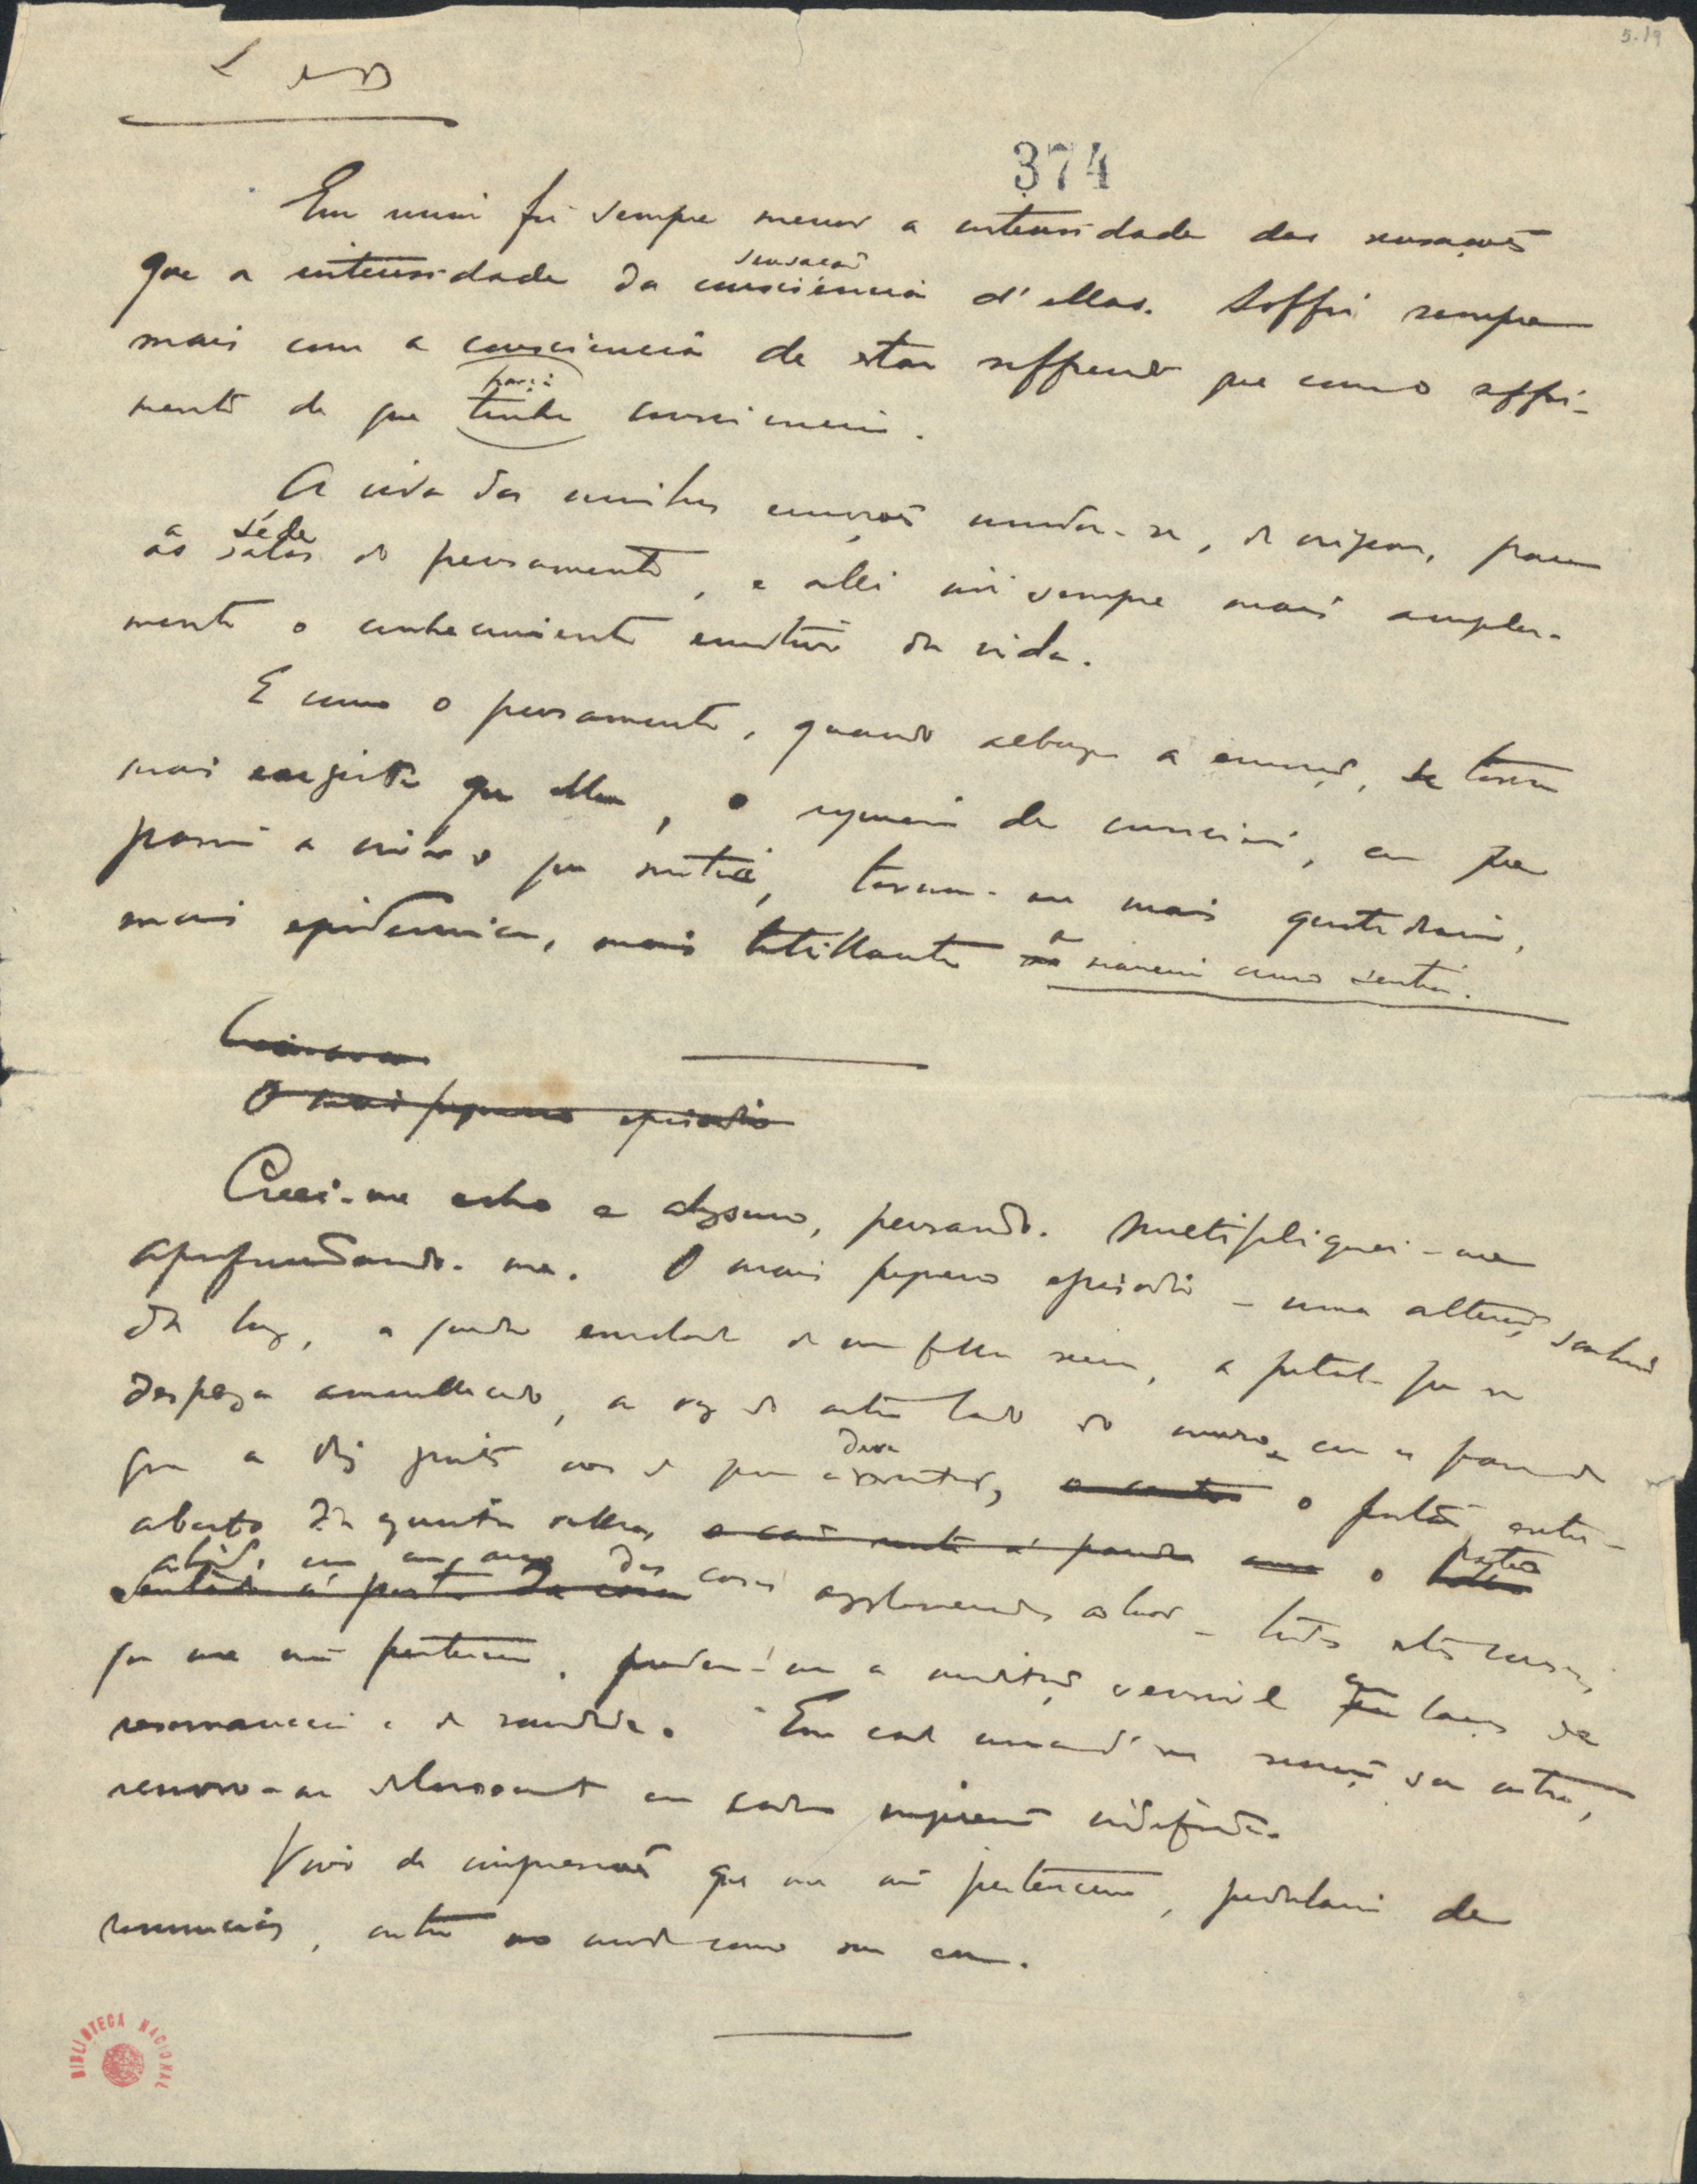 5-19
L do D
374
Em mim foi sempre menor a intensidade das sensações
que a intensidade da consciencia d'ellas. Soffri sempre
sensação
mais com a consciencia de estar soffrendo que com o soffri-
mento de que tinha consciencia.
havia
A vida das minhas emoções mudou-se, de origem, para
as salas do pensamento, e alli vivi sempre mais ampla-
a séde
mente o conhecimento emotivo da vida.
E como o pensamento, quando alberga a emoção, se torna
mais exigente que ella, o regimen de consciencia, em que
passei a viver o que sentia, tornou-me mais quotidiana,
mais epidermica, mais titillante a maneira como sentia.
O mais pequeno episodio
Creei-me echo e abysmo, pensando. Multipliquei-me
aprofundando-me. O mais pequeno episodio – uma alteração sahindo
da luz, a queda enrolada de uma folha secca, a petala que se
despega amarellecida, a voz do outro lado do muro ou os passos de
quem a diz juntos aos de quem a deve escutar, o portão entre-
aberto da quinta velha, o pateo
abrindo com um arco das casas agglomeradas ao luar – todas estas cousas,
que me não pertencem, prendem-me a meditação sensivel com laços de
resonancia e de saudade. Em cada uma d'essas sensações sou outro,
renovo-me dolorosamente em cada impressão indefinida.
Vivo de impressões que me não pertencem, perdulario de
renuncias, outro no modo como sou eu.
BIBLIOTECA NACIONAL